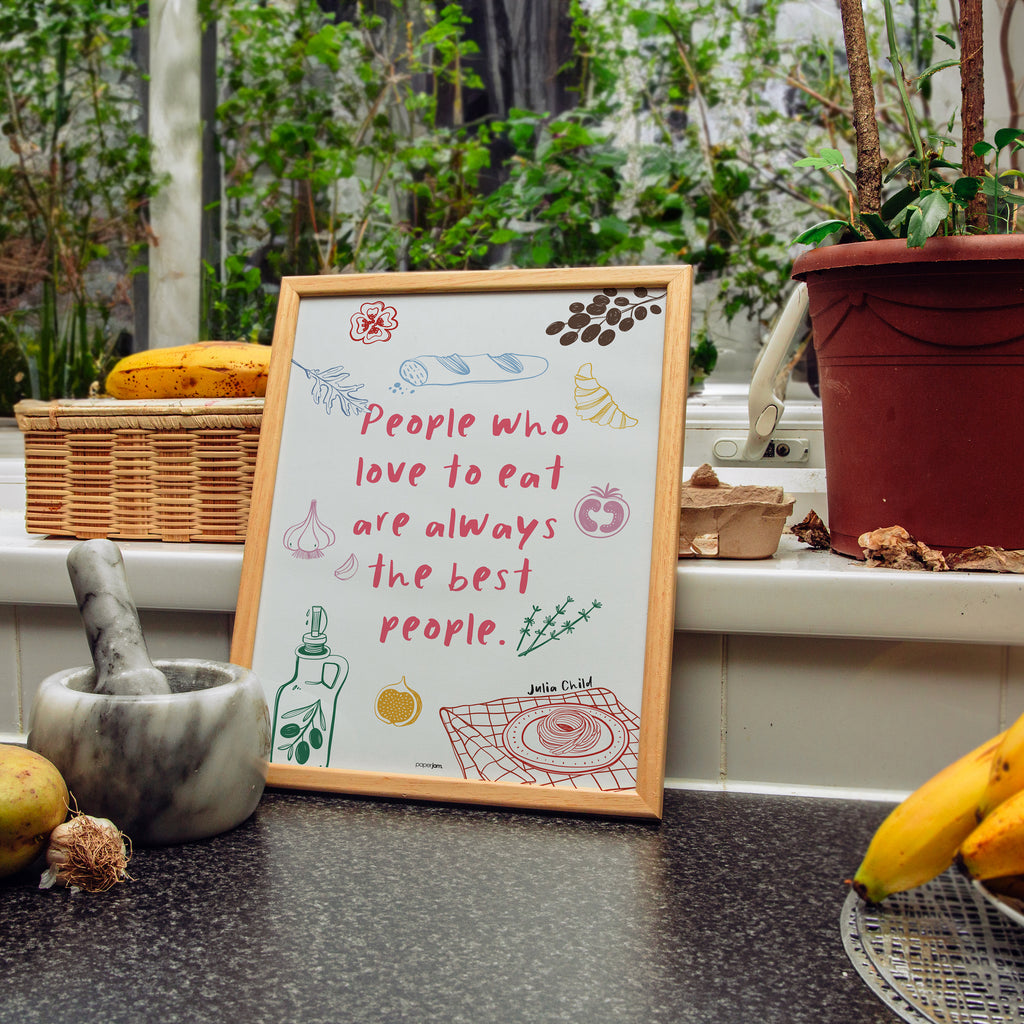 People who
love to eat
are always
the best
people.
Julia Child
paperjam.